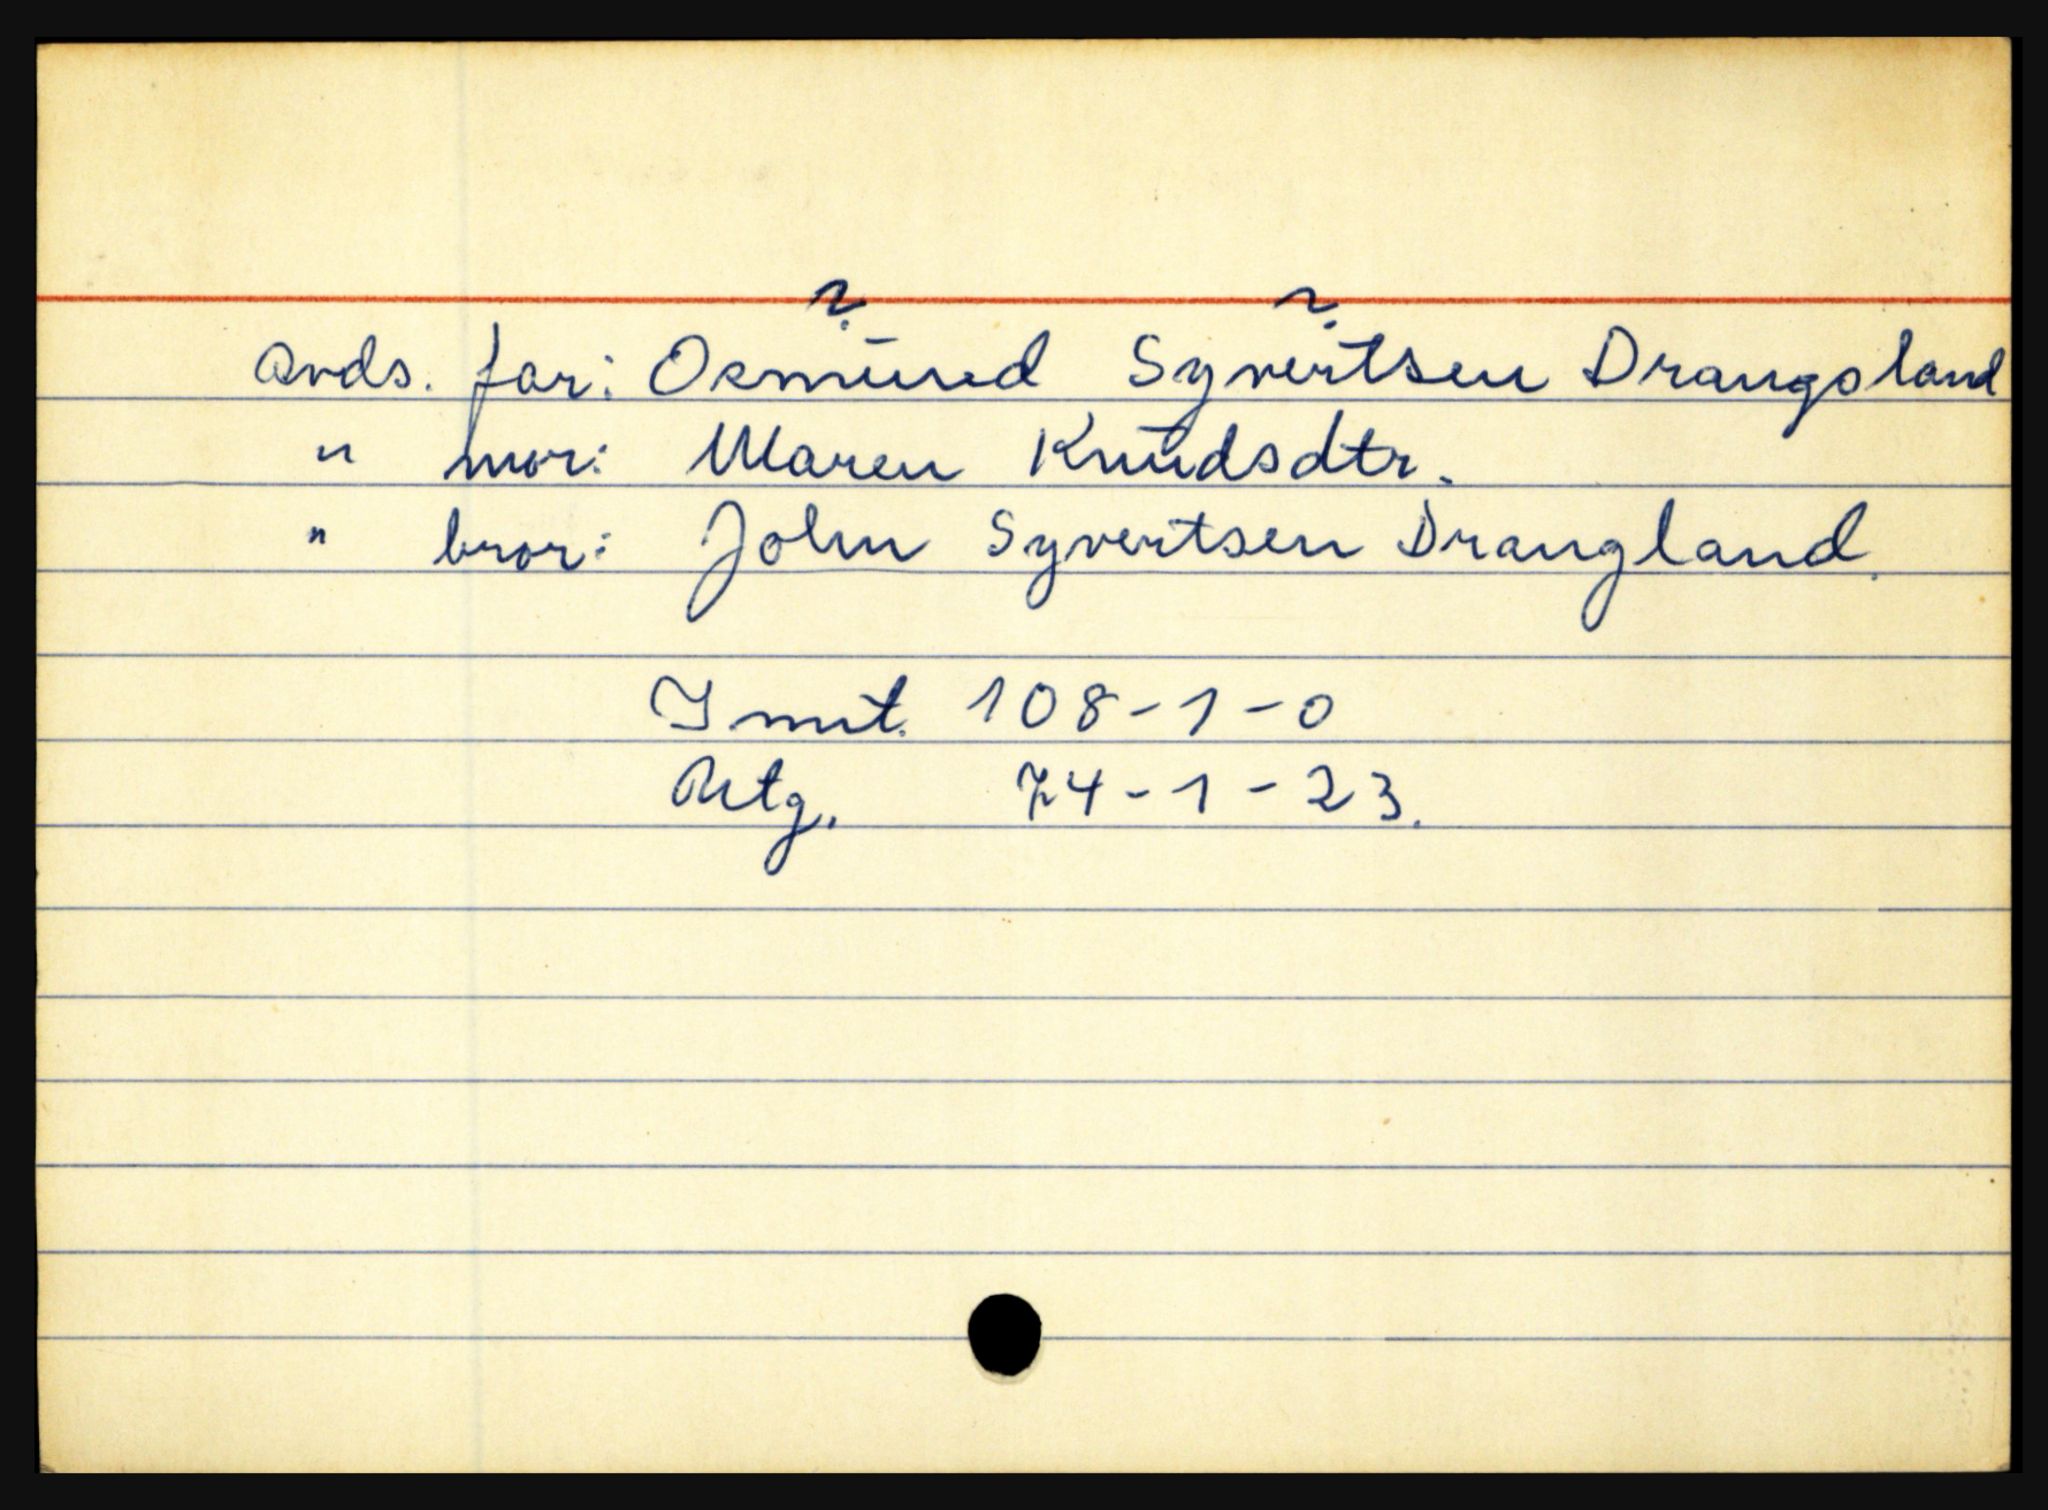 ? ?
Avds. far: Osmund Syvertsen Drangsland
" mor: Maren Knudsdtr.
" bror: John Syvertsen Drangland.
Innt. 108-1-0
Utg. 74-1-23.